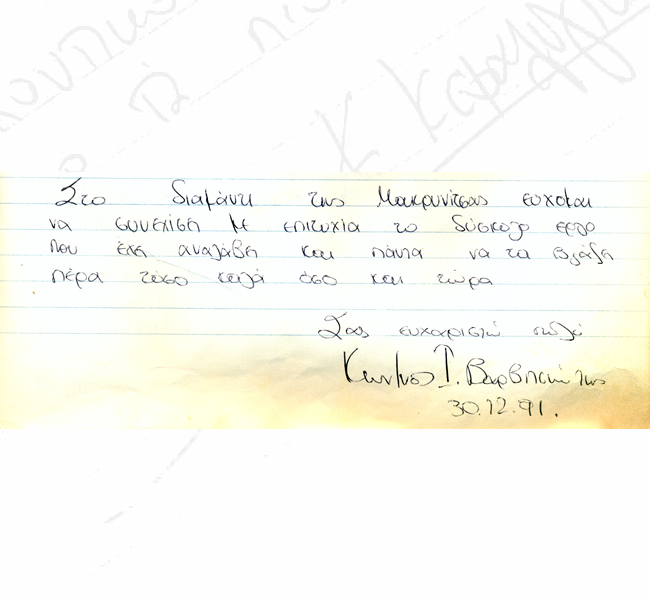 Στο διαμάντι της Μακρυνίτσας ευχομαι
να συνεχίση με επιτυχία το δύσκολο εργο
που έχη αναλάβη και πάντα να τα βγάζη
πέρα τόσο καλά όσο και τώρα
Σας ευχαριστώ πολύ
Κων/νος Γ. Βαρβιτσιώτης
30.12.91.